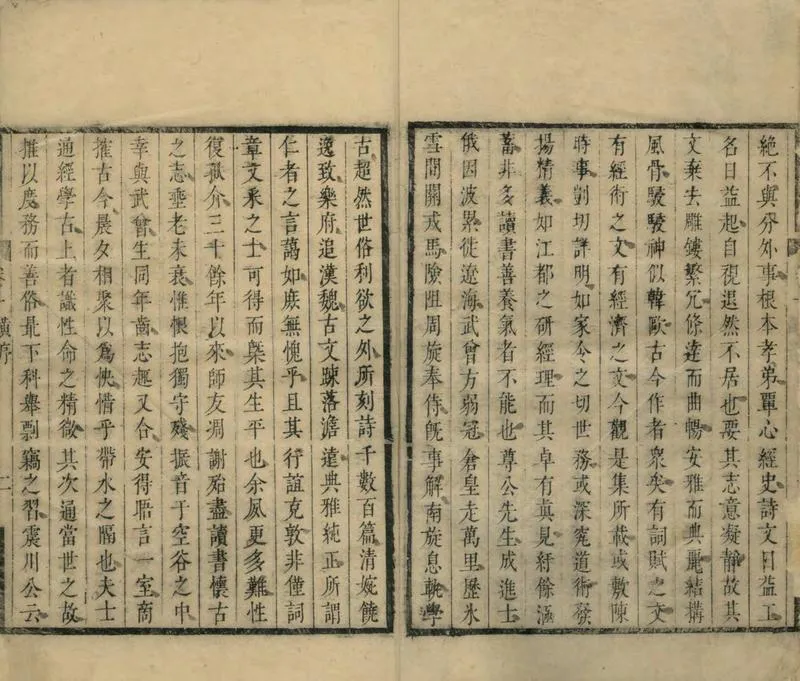 絶不與分外事根本孝弟單心經史詩文日益工
名日益起自視退然不居也要其志意凝靜故其
文棄去雕鏤繁冗條達而曲暢安雅而典麗結搆
風骨駸駸神似韓歐古今作者衆矣有詞賦之文
有經術之文有經濟之文今觀是集所載或敷陳
時事剴切詳明如家令之切世務或深究道術發
揚精義如江都之研經理而其卓有真見紆餘涵
蓄非多讀書善養氣者不能也尊公先生成進士
俄因波累徙遼海武曾方弱冠倉皇走萬里歷氷
雪間關戎馬險阻周旋奉侍旣事解南旋息軌學
古超然世俗利欲之外所刻詩千數百篇清婉饒
逸致樂府追漢魏古文踈落澹遠典雅純正所謂
仁者之言藹如庶無愧乎且其行誼克敦非僅詞
章文采之士可得而槩其生平也余夙更多難性
復狷介三十餘年以來師友凋謝殆盡讀書懷古
之志垂老未衰惟懷抱獨守殘振音于空谷之中
幸與武曾生同年齒志趣又合安得晤言一室商
搉古今晨夕相聚以爲快惜乎帶水之隔也夫士
通經學古上者識性命之精微其次通當世之故
推以度務而善俗最下科舉剽竊之習震川公云
序
二